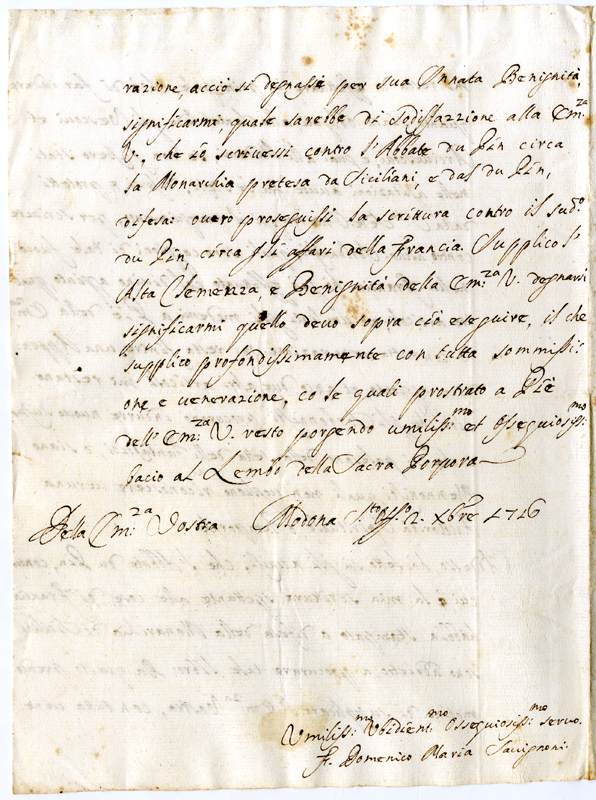 razione, acciò si degnasse per sua Innata Benignità,
significarmi, quale sarebbe di sodisfazzione alla Em.za
V., che io scrivessi contro l'Abbate du Pin circa
la Monarchia pretesa da Siciliani, e dal du Pin,
difesa: overo proseguissi la scrittura contro il sud.o
du Pin, circa gli affari della francia. Supplico l'
Alta Clemenza, e Benignità della Em.za V. degnarsi
significarmi quello devo sopra ciò eseguire, il che
supplico profondissimamente con tutta sommissi:
one, e venerazione, co le quali prostrato a Piè
dell'Em.za V. resto porgendo umiliss.mo et Ossequiosiss.mo
bacio al Lembo della Sacra Porpora
Della Em.za Vostra Modona 2. Xbre 1716
Umiliss.mo Obidient.mo Ossequiosiss.mo servo.
f. Domenico Maria